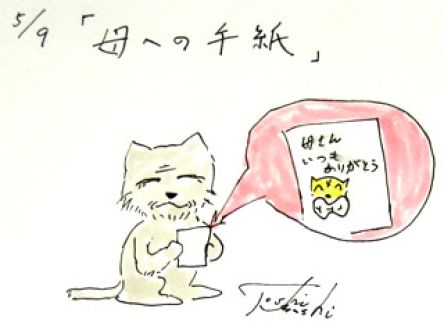 5/9「母への手紙」
母さん
いつも
ありがとう